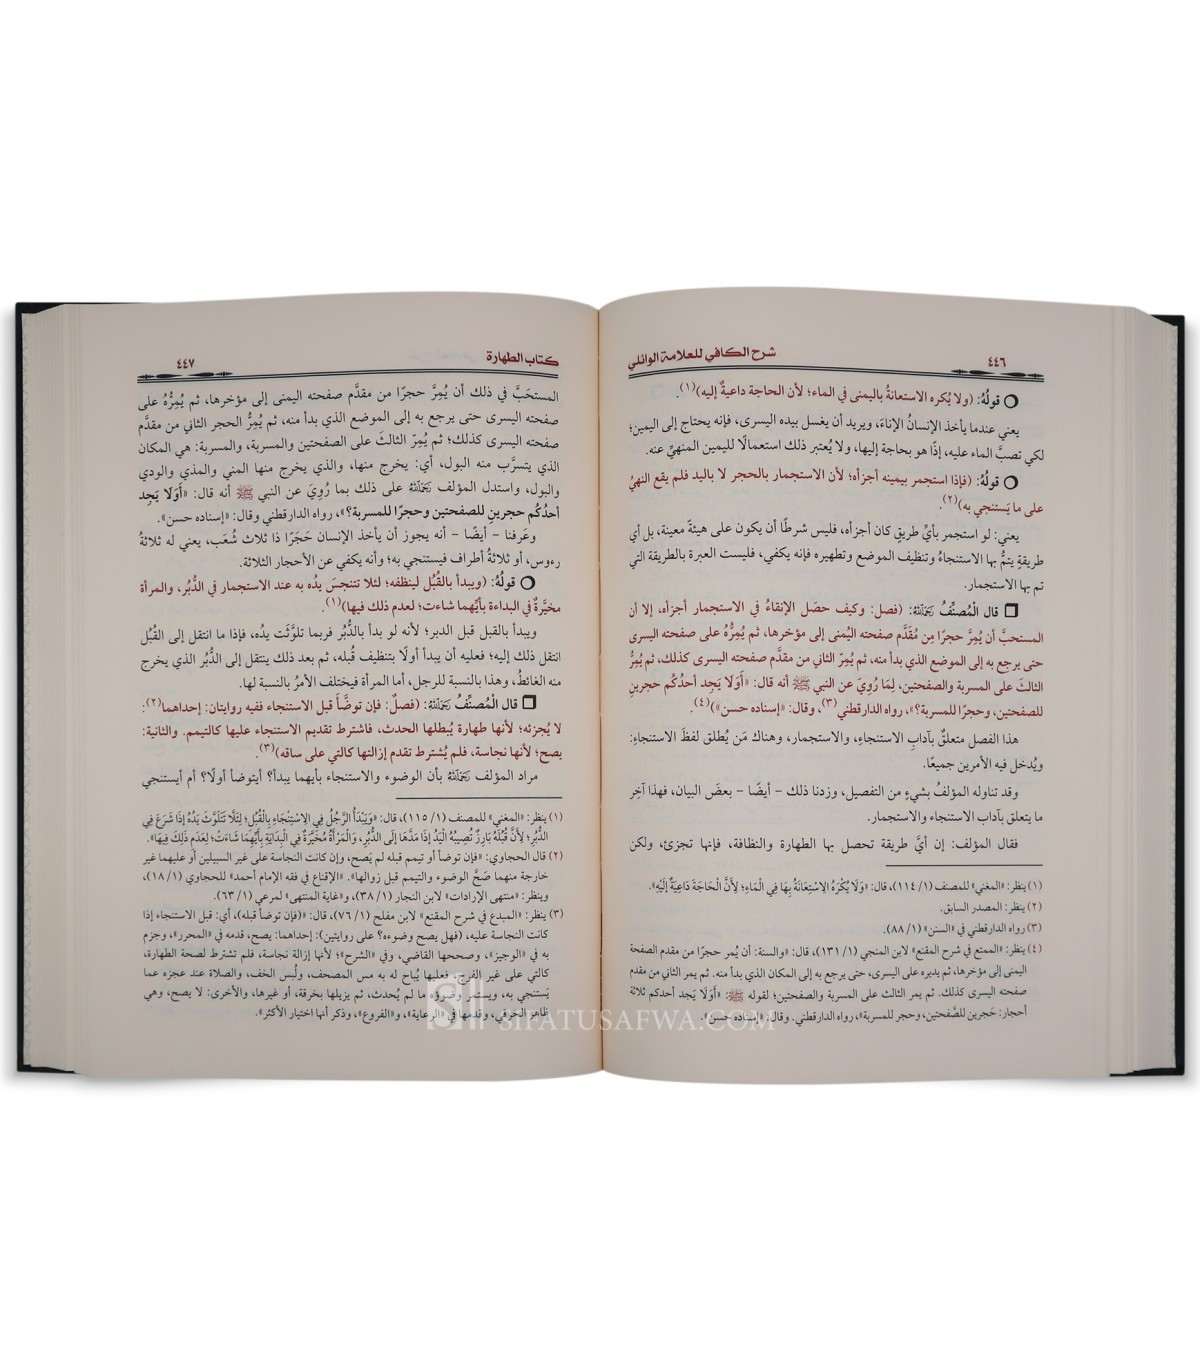 ٤٤٦
شرح الكافي للعلامة الوائلي
قولُهُ: (ولا يُكره الاستعانةُ باليمنى في الماء؛ لأن الحاجة داعيةٌ إليه)(١).
يعني عندما يأخذ الإنسانُ الإناءَ، ويريد أن يغسل بيده اليسرى، فإنه يحتاج إلى اليمين؛
لكي تصبَّ الماء عليه، إذًا هو بحاجة إليها، ولا يُعتبر ذلك استعمالًا لليمين المنهيِّ عنه.
قولُهُ: (فإذا استجمر بيمينه أجزأه؛ لأن الاستجمار بالحجر لا باليد فلم يقع النهيُ
على ما يَستنجي به)(٢).
يعني: لو استجمر بأيِّ طريقٍ كان أجزأه، فليس شرطًا أن يكون على هيئةٍ معينة، بل أي
طريقةٍ يتمُّ بها الاستنجاءُ وتنظيف الموضع وتطهيره فإنه يكفي، فليست العبرة بالطريقة التي
تم بها الاستجمار.
قال الْمُصنِّفُ رَحِمَهُ اللَّهُ: (فصل: وكيف حصَل الإنقاءُ في الاستجمار أجزأه، إلا أن
المستحبَّ أن يُمِرَّ حجرًا مِن مُقَدَّم صفحته اليُمنى إلى مؤخرها، ثم يُمِرُّه على صفحته اليسرى
حتى يرجع به إلى الموضع الذي بدأ منه، ثم يُمِرّ الثاني من مقدَّم صفحته اليسرى كذلك، ثم يُمِرُّ
الثالثَ على المسربة والصفحتين، لِمَا رُوِيَ عن النبي ﷺ أنه قال: «أَوَلَا يَجِد أحدُكُم حجرينِ
للصفحتين، وحجرًا للمسربة؟»، رواه الدارقطني(٣)، وقال: «إسناده حسن»)(٤).
هذا الفصل متعلقٌ بآدابِ الاستنجاءِ، والاستجمار، وهناك مَن يُطلق لفظَ الاستنجاءِ؛
ويُدخل فيه الأمرين جميعًا.
وقد تناوله المؤلفُ بشيءٍ من التفصيل، وزدنا ذلك - أيضًا - بعضَ البيان، فهذا آخِر
ما يتعلق بآداب الاستنجاء والاستجمار.
فقال المؤلف: إن أيَّ طريقة تحصل بها الطهارة والنظافة، فإنها تجزئ، ولكن
(١) ينظر: «المغني» للمصنف (١/ ١١٤)، قال: «وَلَا يُكْرَهُ الِاسْتِعَانَةُ بِهَا فِي الْمَاءِ؛ لِأَنَّ الْحَاجَةَ دَاعِيَةٌ إلَيْهِ».
(٢) ينظر: المصدر السابق.
(٣) رواه الدارقطني في «السنن» (١/ ٨٨).
(٤) ينظر: «الممتع في شرح المقنع» لابن المنجي (١/ ١٣١)، قال: «والسنة: أن يُمر حجرًا من مقدم الصفحة
اليمنى إلى مؤخرها، ثم يديره على اليسرى، حتى يرجع به إلى المكان الذي بدأ منه. ثم يمر الثاني من مقدم
صفحته اليسرى كذلك. ثم يمر الثالث على المسربة والصفحتين؛ لقوله ﷺ: «أَوَلَا يَجد أحدكم ثلاثة
أحجار: حَجرين للصَّفحتين، وحجر للمسربة»، رواه الدارقطني. وقال: «إسناده حسن».
كتاب الطهارة
٤٤٧
المستحَبَّ في ذلك أن يُمِرَّ حجرًا من مقدَّم صفحته اليمنى إلى مؤخرها، ثم يُمِرُّهُ على
صفحته اليسرى حتى يرجع به إلى الموضع الذي بدأ منه، ثم يُمِرُّ الحجر الثاني من مقدَّم
صفحته اليسرى كذلك؛ ثم يُمِرّ الثالثَ على الصفحتين والمسربة، والمسربة: هي المكان
الذي يتسرَّب منه البول، أي: يخرج منها، والذي يخرج منها المني والمذي والودي
والبول، واستدل المؤلف رَحِمَهُ اللَّهُ على ذلك بما رُوِيَ عن النبي ﷺ أنه قال: «أَوَلَا يَجِد
أحدُكُم حجرينِ للصفحتين وحجرًا للمسربة؟»، رواه الدارقطني وقال: «إسناده حسن».
وعَرفنا - أيضًا - أنه يجوز أن يأخذ الإنسان حَجَرًا ذا ثلاث شُعَب، يعني له ثلاثةُ
رءوس، أو ثلاثةُ أطراف فيستنجي به؛ وأنه يكفي عن الأحجار الثلاثة.
قولُهُ: (ويبدأ بالقُبُل لينظفه؛ لئلا تتنجسَ يدُه به عند الاستجمار في الدُّبُر، والمرأة
مخيَّرةٌ في البداءة بأيِّهما شاءت؛ لعدم ذلك فيها)(١).
ويبدأ بالقبل قبل الدبر؛ لأنه لو بدأ بالدُّبُر فربما تلوَّثت يدُه، فإذا ما انتقل إلى القُبُل
انتقل ذلك إليه؛ فعليه أن يبدأ أولًا بتنظيف قُبله، ثم بعد ذلك ينتقل إلى الدُّبُر الذي يخرج
منه الغائطُ، وهذا بالنسبة للرجل، أما المرأة فيختلف الأمرُ بالنسبة لها.
قال الْمُصنِّفُ رَحِمَهُ اللَّهُ: (فصلٌ: فإن توضَّأَ قبل الاستنجاء ففيه روايتان: إحداهما(٢):
لا يُجزئه؛ لأنها طهارة يُبطلها الحدث، فاشترط تقديم الاستنجاء عليها كالتيمم. والثانية:
يصح؛ لأنها نجاسة، فلم يُشترط تقدم إزالتها كالتي على ساقه)(٣).
مراد المؤلف رَحِمَهُ اللَّهُ بأن الوضوء والاستنجاء بأيهما يبدأ؟ أيتوضأ أولًا؟ أم أيستنجي
(١) ينظر: «المغني» للمصنف (١/ ١١٥)، قال: «وَيَبْدَأُ الرَّجُلُ فِي الِاسْتِنْجَاءِ بِالْقُبُلِ؛ لِئَلَّا تَتَلَوَّثَ يَدُهُ إذَا شَرَعَ فِي
الدُّبُرِ؛ لِأَنَّ قُبُلَهُ بَارِزٌ تُصِيبُهُ الْيَدُ إذَا مَدَّهَا إلَى الدُّبُرِ، وَالْمَرْأَةُ مُخَيَّرَةٌ فِي الْبِدَايَةِ بِأَيِّهِمَا شَاءَتْ؛ لِعَدَمِ ذَلِكَ فِيهَا».
(٢) قال الحجاوي: «فإن توضأ أو تيمم قبله لم يَصح، وإن كانت النجاسة على غير السبيلين أو عليهما غير
خارجة منهما صَحَّ الوضوء والتيمم قبل زوالها». «الإقناع في فقه الإمام أحمد» للحجاوي (١/ ١٨)،
وينظر: «منتهى الإرادات» لابن النجار (١/ ٣٨)، و«غاية المنتهى» لمرعي (١/ ٦٣).
(٣) ينظر: «المبدع في شرح المقنع» لابن مفلح (١/ ٧٦)، قال: «(فإن توضأ قبله)، أي: قبل الاستنجاء إذا
كانت النجاسة عليه، (فهل يصح وضوءه؟ على روايتين): إحداهما: يصح، قدمه في «المحرر»، وجزم
به في «الوجيز»، وصححها القاضي، وفي «الشرح»؛ لأنها إزالة نجاسة، فلم تشترط لصحة الطهارة،
كالتي على غير الفرج، فعليها يُباح له به مس المصحف، ولُبس الخف، والصلاة عند عجزه عما
يَستنجي به، ويستمر وضوؤه ما لم يُحدث، ثم يزيلها بخرقة، أو غيرها، والأخرى: لا يصح، وهي
ظاهر الخرقي، وقدمها في «الرعاية»، و«الفروع»، وذكر أنها اختيار الأكثر».
SIFATUSAFWA.COM